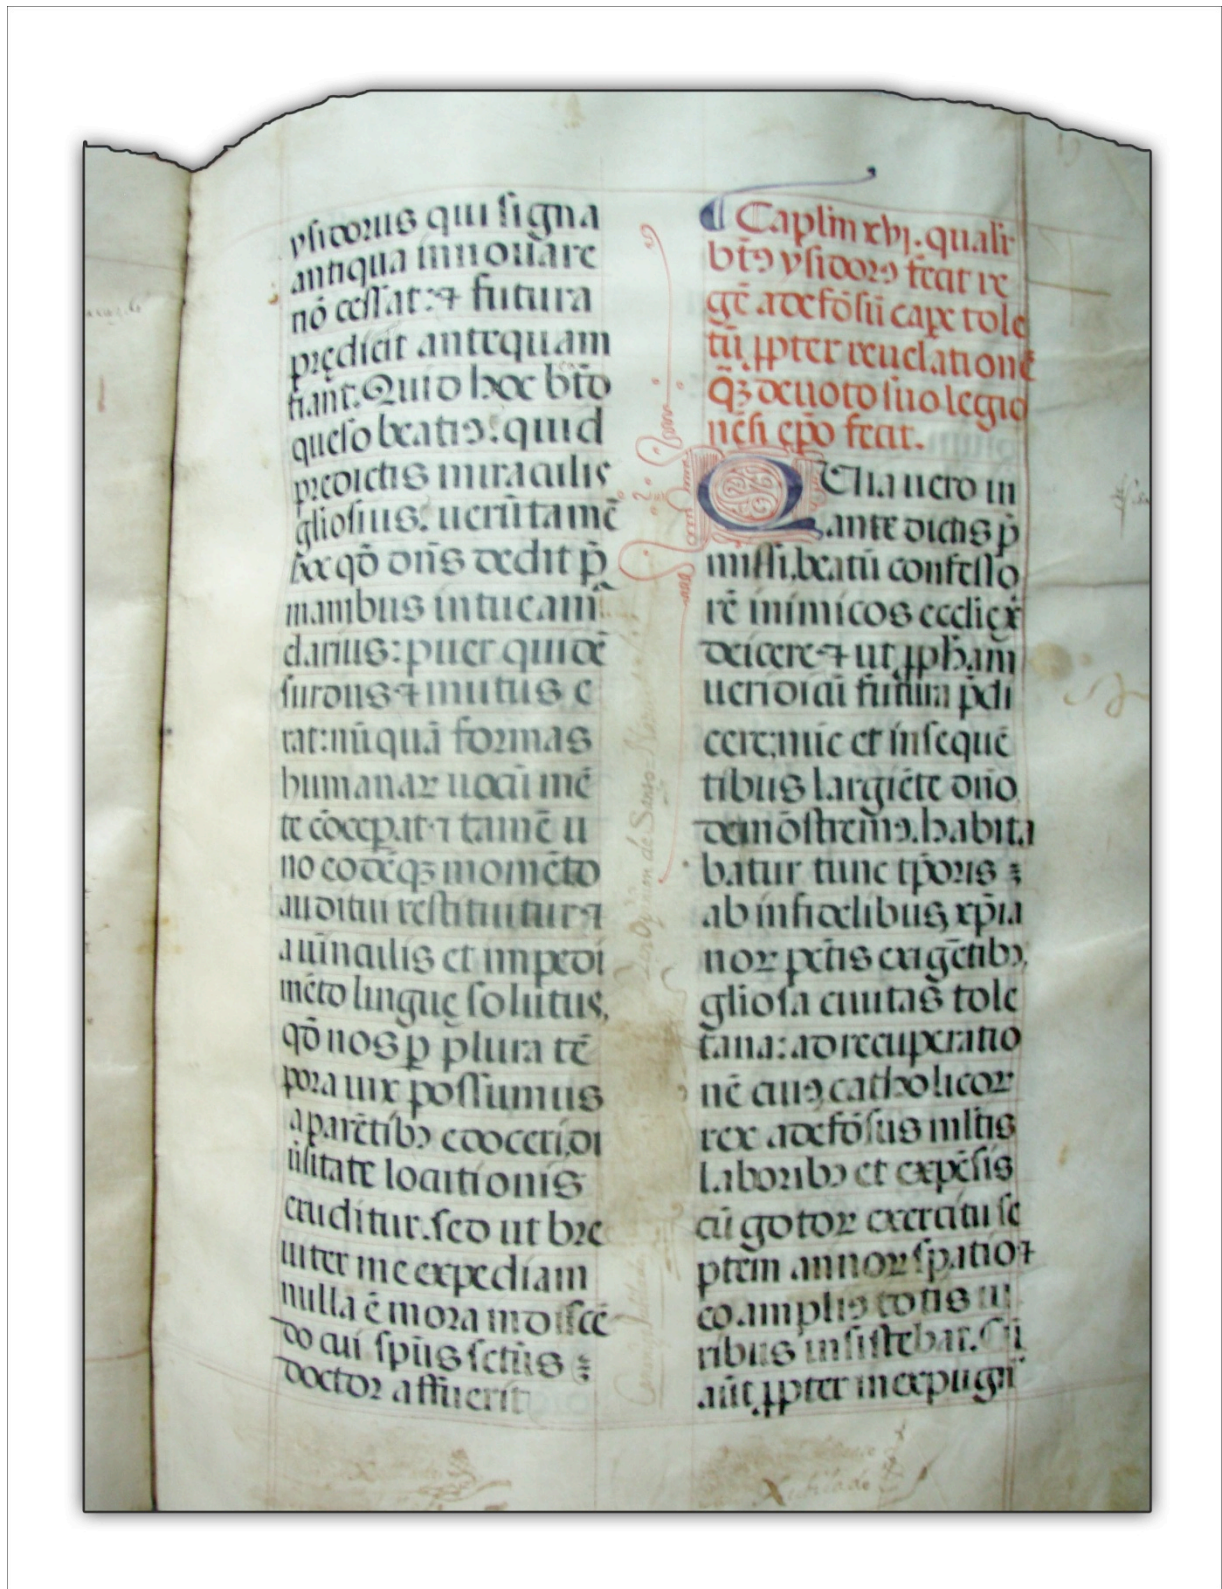 ysidorus qui signa
antiqua innouare
nō cessat: ⁊ futura
prędicit antequam
fiant. Quid hoc btō
queso beatiꝰ: quid
predictis miraculis
gliosius. uerūtamē
hoc qd̄ dn̄s dedit p̄
manibus intueam̄
clarius: puer quidē
surdus ⁊ mutus e
rat: nūquā formas
humanaꝝ uocū mē
te cōceperat ⁊ tamē u
no eodēqꝫ momēto
auditui restituitur ⁊
a uinculis et impedi
mēto linguę solutus,
qd̄ nos ꝑ plura tē
pora uix possumus
a parētibꝰ edoceri, di
usitate locutionis
eruditur. sed ut bre
uiter me expediam
nulla ē mora in discē
do cui sp̄us sctūs
doctor affuerit
Caplm xvj. qualit̄
bt̄ꝰ ysidorꝰ fecit re
gē adefōsū cape tole
tū ꝓpter reuelationē
qꝫ de uoto suo legio
nēsi ep̄o fecit.
Quia uero in
ante dictis p̄
misi, beatū confesso
rē inimicos ecclię
deicere ⁊ ut ꝓpham
ueridicū futura p̄di
cere; nūc et in sequē
tibus largiēte dn̄o
demōstremꝰ. habita
batur tunc tp̄oris
ab infidelibus, xp̄ia
noꝝ pctis exigētibꝰ,
gliosa ciuitas tole
tana: ad recuperatio
nē cuiꝰ catholicoꝝ
rex adefōsus mltis
laboribꝰ et expēsis
cū gotoꝝ exercitu se
ptem annoꝝ spatio ⁊
eo ampliꝰ totis ui
ribus insistebat. Cū
aūt ꝓpter inexpugn̄